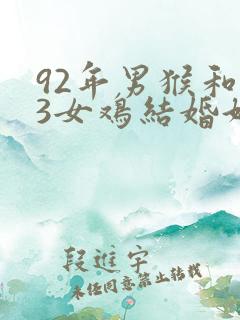 92年男猴和
3女鸡结婚好
段進宇
未经同意禁止转载